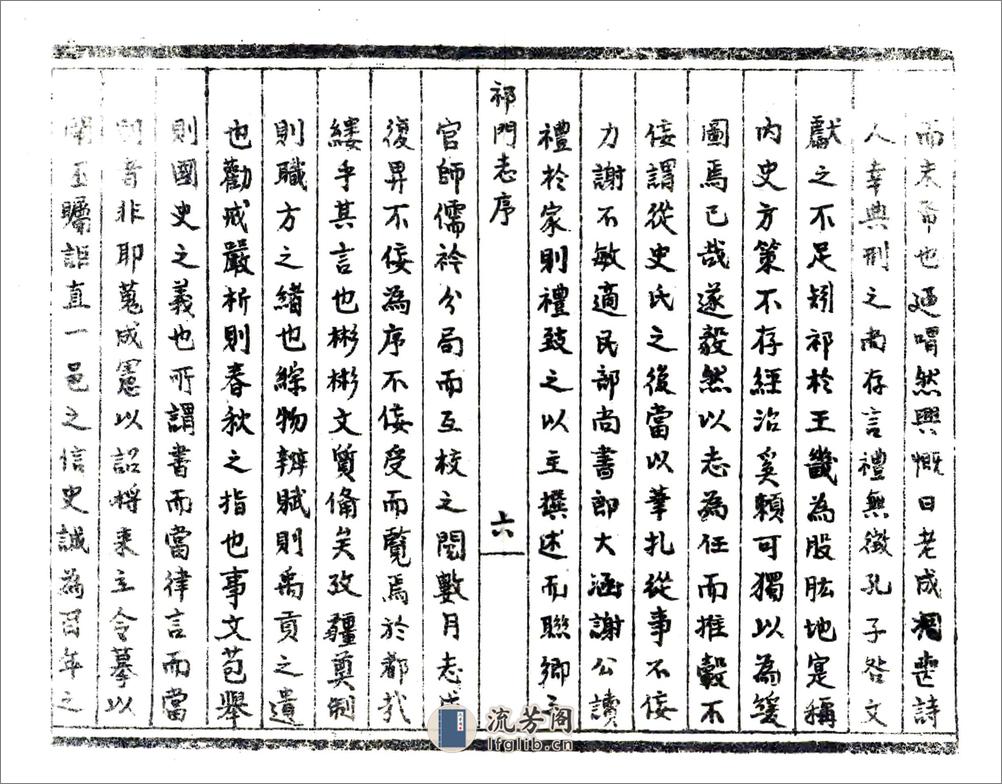 而未備也廼喟然興慨曰老成凋喪詩
人幸典刑之尚存言禮無徵孔子咎文
獻之不足矧祁於王畿為股肱地寔稱
内史方策不存經治奚賴可獨以為緩
圖焉已哉遂毅然以志為任而推轂不
佞謂從史氏之後當以筆札從事不佞
力謝不敏適民部尚書郎大涵謝公讀
禮於家則禮致之以主撰述而聯鄉之
祁門志序
六
官師儒衿分局而互校之閱數月志成
復畀不佞為序不佞受而覽焉於都哉
縷乎其言也彬彬文質備矣攷疆奠制
則職方之緒也綜物辨賦則禹貢之遺
也勸戒嚴析則春秋之指也事文苞舉
則國史之義也所謂書而當律言而當
則者非耶蒐成憲以詔将来立令摹以
闡至矚詎直一邑之信史誠為百年之
流芳阁
lfglib.cn